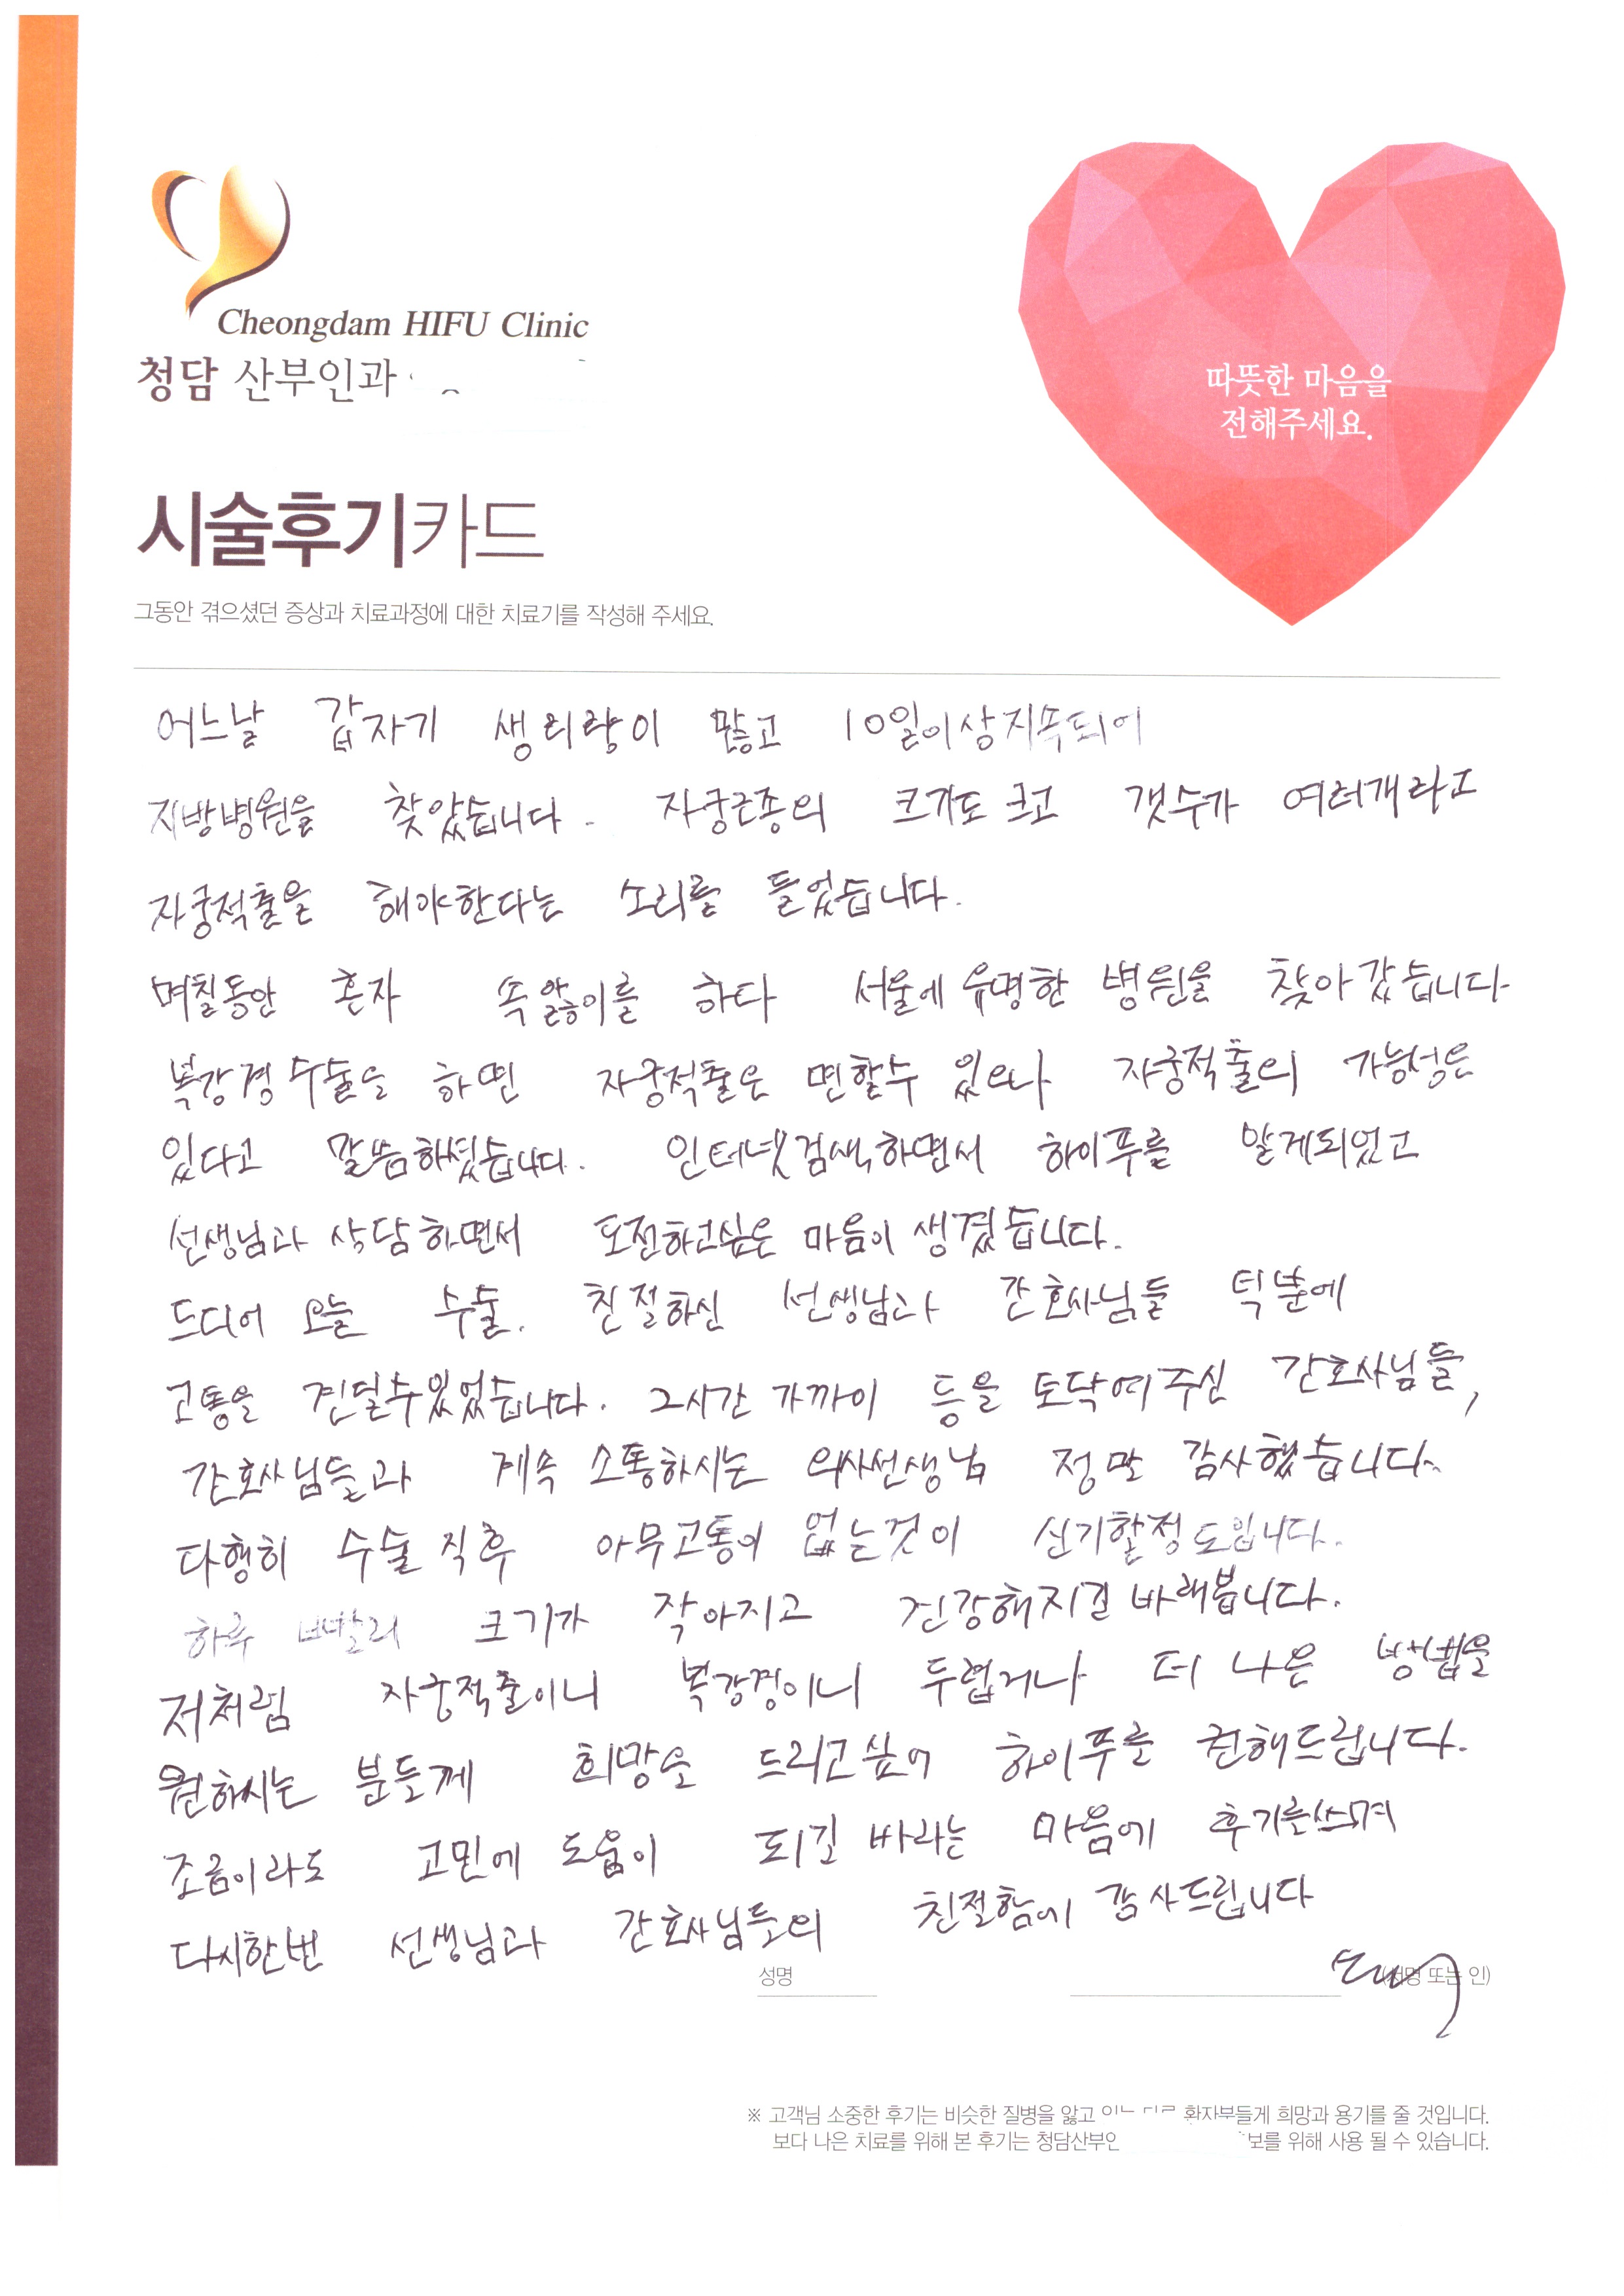 Cheongdam HIFU Clinic
청담 산부인과
따뜻한 마음을
전해주세요.
시술후기카드
그동안 겪으셨던 증상과 치료과정에 대한 치료기를 작성해 주세요.
어느날 갑자기 생리량이 많고 10일이상지속되어
지방병원을 찾았습니다. 자궁근종의 크기도 크고 갯수가 여러개라고
자궁적출을 해야한다는 소리를 들었습니다.
며칠동안 혼자 속앓이를 하다 서울에 유명한 병원을 찾아갔습니다
복강경수술을 하면 자궁적출은 면할수 있으나 자궁적출의 가능성은
있다고 말씀하셨습니다. 인터넷검색하면서 하이푸를 알게되었고
선생님과 상담하면서 도전하고싶은 마음이 생겼습니다.
드디어 오늘 수술. 친절하신 선생님과 간호사님들 덕분에
고통을 견딜수있었습니다. 2시간 가까이 등을 토닥여주신 간호사님들,
간호사님들과 계속 소통하시는 의사선생님 정말 감사했습니다.
다행히 수술직후 아무고통이 없는것이 신기할정도입니다.
하루 빨리 크기가 작아지고 건강해지길 바래봅니다.
저처럼 자궁적출이니 복강경이니 두렵거나 더 나은 방법을
원하시는 분들께 희망을 드리고싶어 하이푸를 권해드립니다.
조금이라도 고민에 도움이 되길 바라는 마음에 후기를쓰며
다시한번 선생님과 간호사님들의 친절함에 감사드립니다
성명 (서명 또는 인)
※ 고객님 소중한 후기는 비슷한 질병을 앓고 있는 다른 환자분들게 희망과 용기를 줄 것입니다.
보다 나은 치료를 위해 본 후기는 청담산부인 보를 위해 사용 될 수 있습니다.